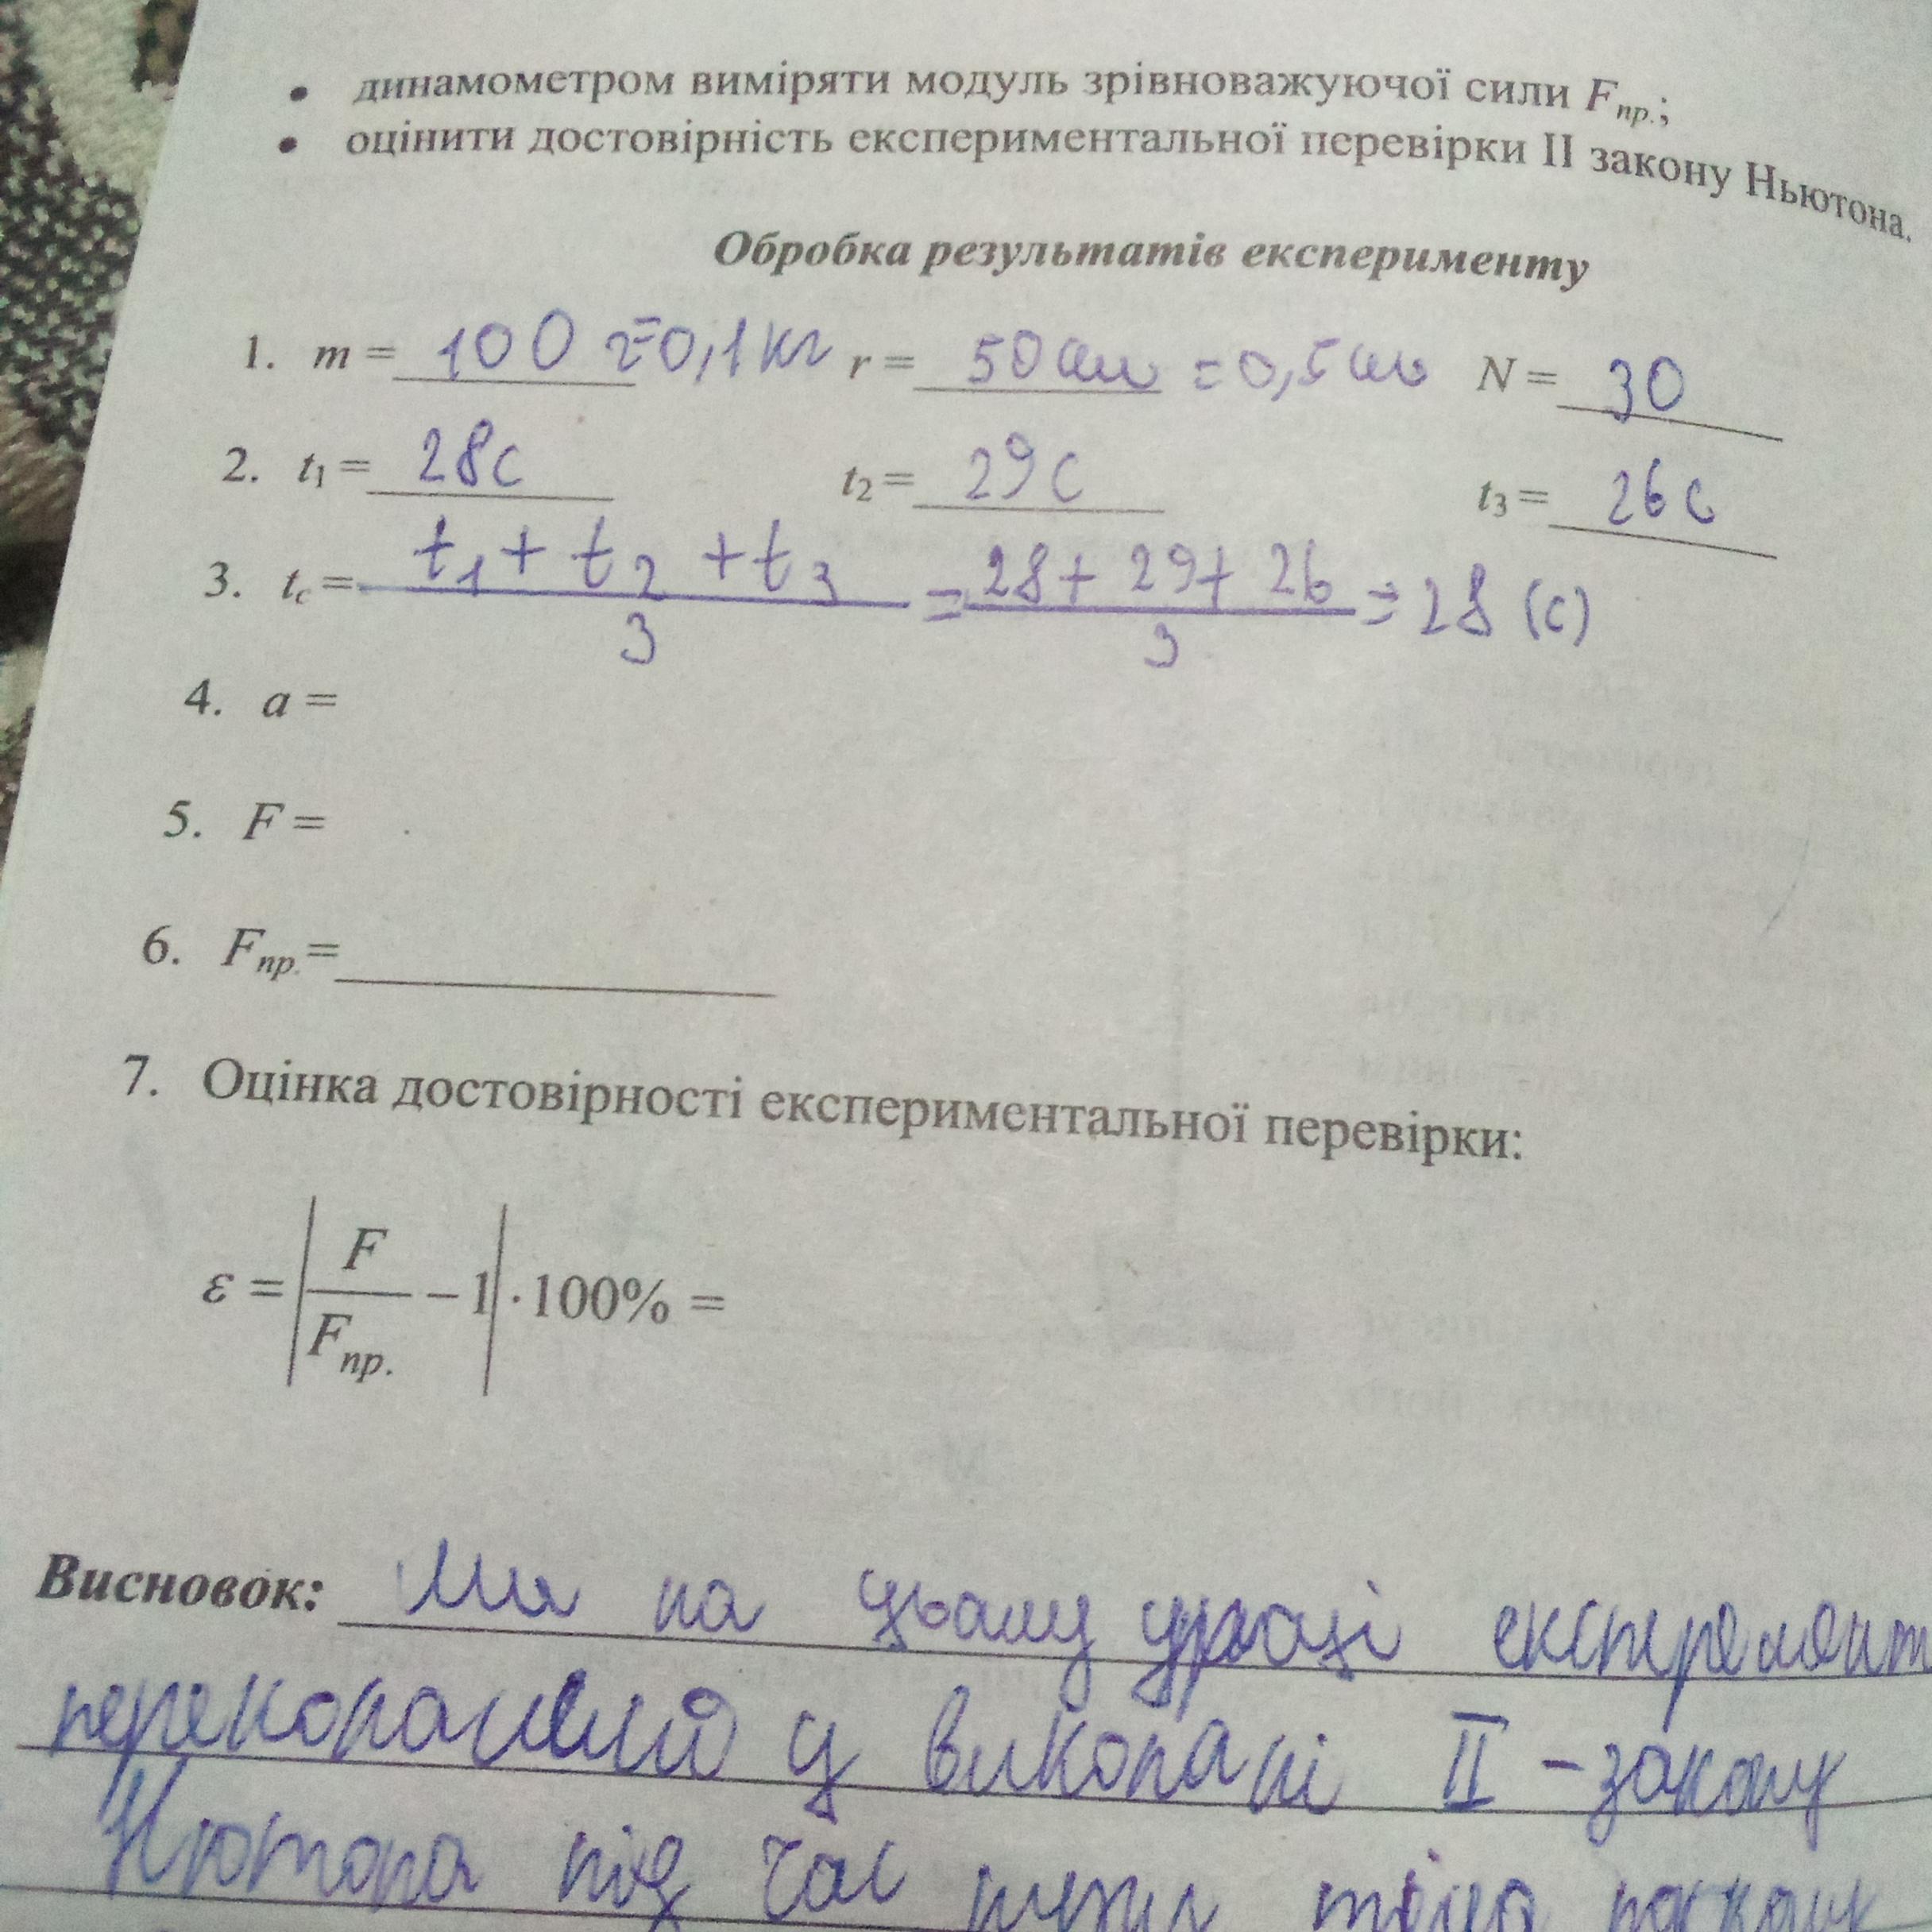 • динамометром виміряти модуль зрівноважуючої сили Fпр.;
• оцінити достовірність експериментальної перевірки II закону Ньютона.
Обробка результатів експерименту
1. m = 100 г=0,1кг r = 50 см = 0,5 см N = 30
2. t1 = 28с t2 = 29с t3 = 26 с
3. tc = (t1 + t2 + t3)/3 = (28 + 29 + 26)/3 = 28 (с)
4. a =
5. F =
6. Fпр. =
7. Оцінка достовірності експериментальної перевірки:
ε = |F/Fпр. − 1| · 100% =
Висновок: Ми на цьому уроці експеремент
переконались у виконані II – закону
Нютона під час руху тіла по колу